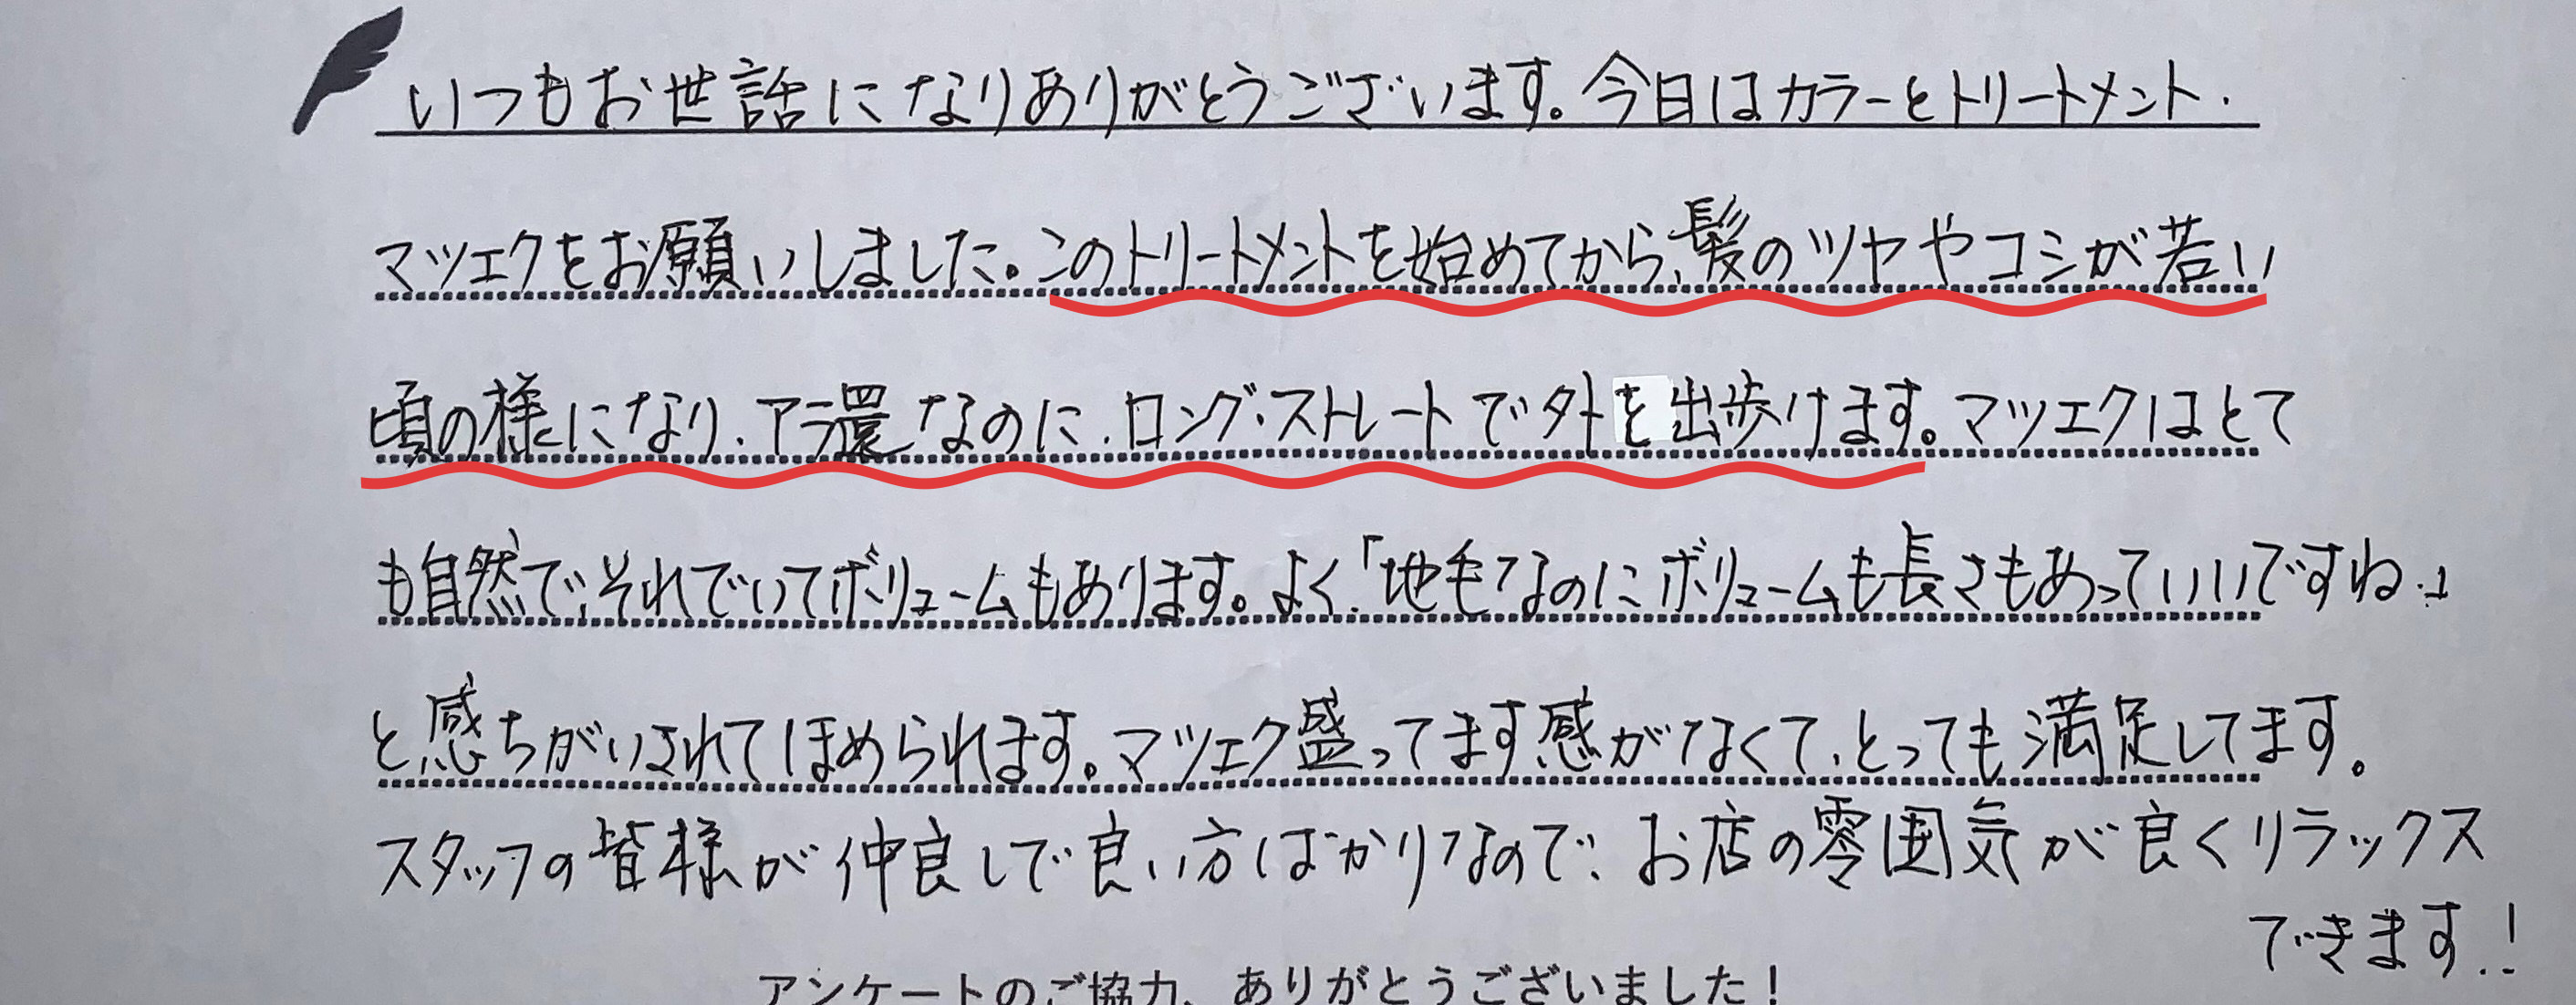 いつもお世話になりありがとうございます。今日はカラーとトリートメント.
マツエクをお願いしました。このトリートメントを始めてから、髪のツヤやコシが若い
頃の様になり、アラ還なのに、ロング・ストレートで外を出歩けます。マツエクはとて
も自然で、それでいてボリュームもあります。よく、「地毛なのにボリュームも長さもあっていいですね…」
と感ちがいされてほめられます。マツエク盛ってます感がなくて、とっても満足してます。
スタッフの皆様が仲良しで良い方ばかりなので、お店の雰囲気が良くリラックス
できます!!
アンケートのご協力、ありがとうございました!